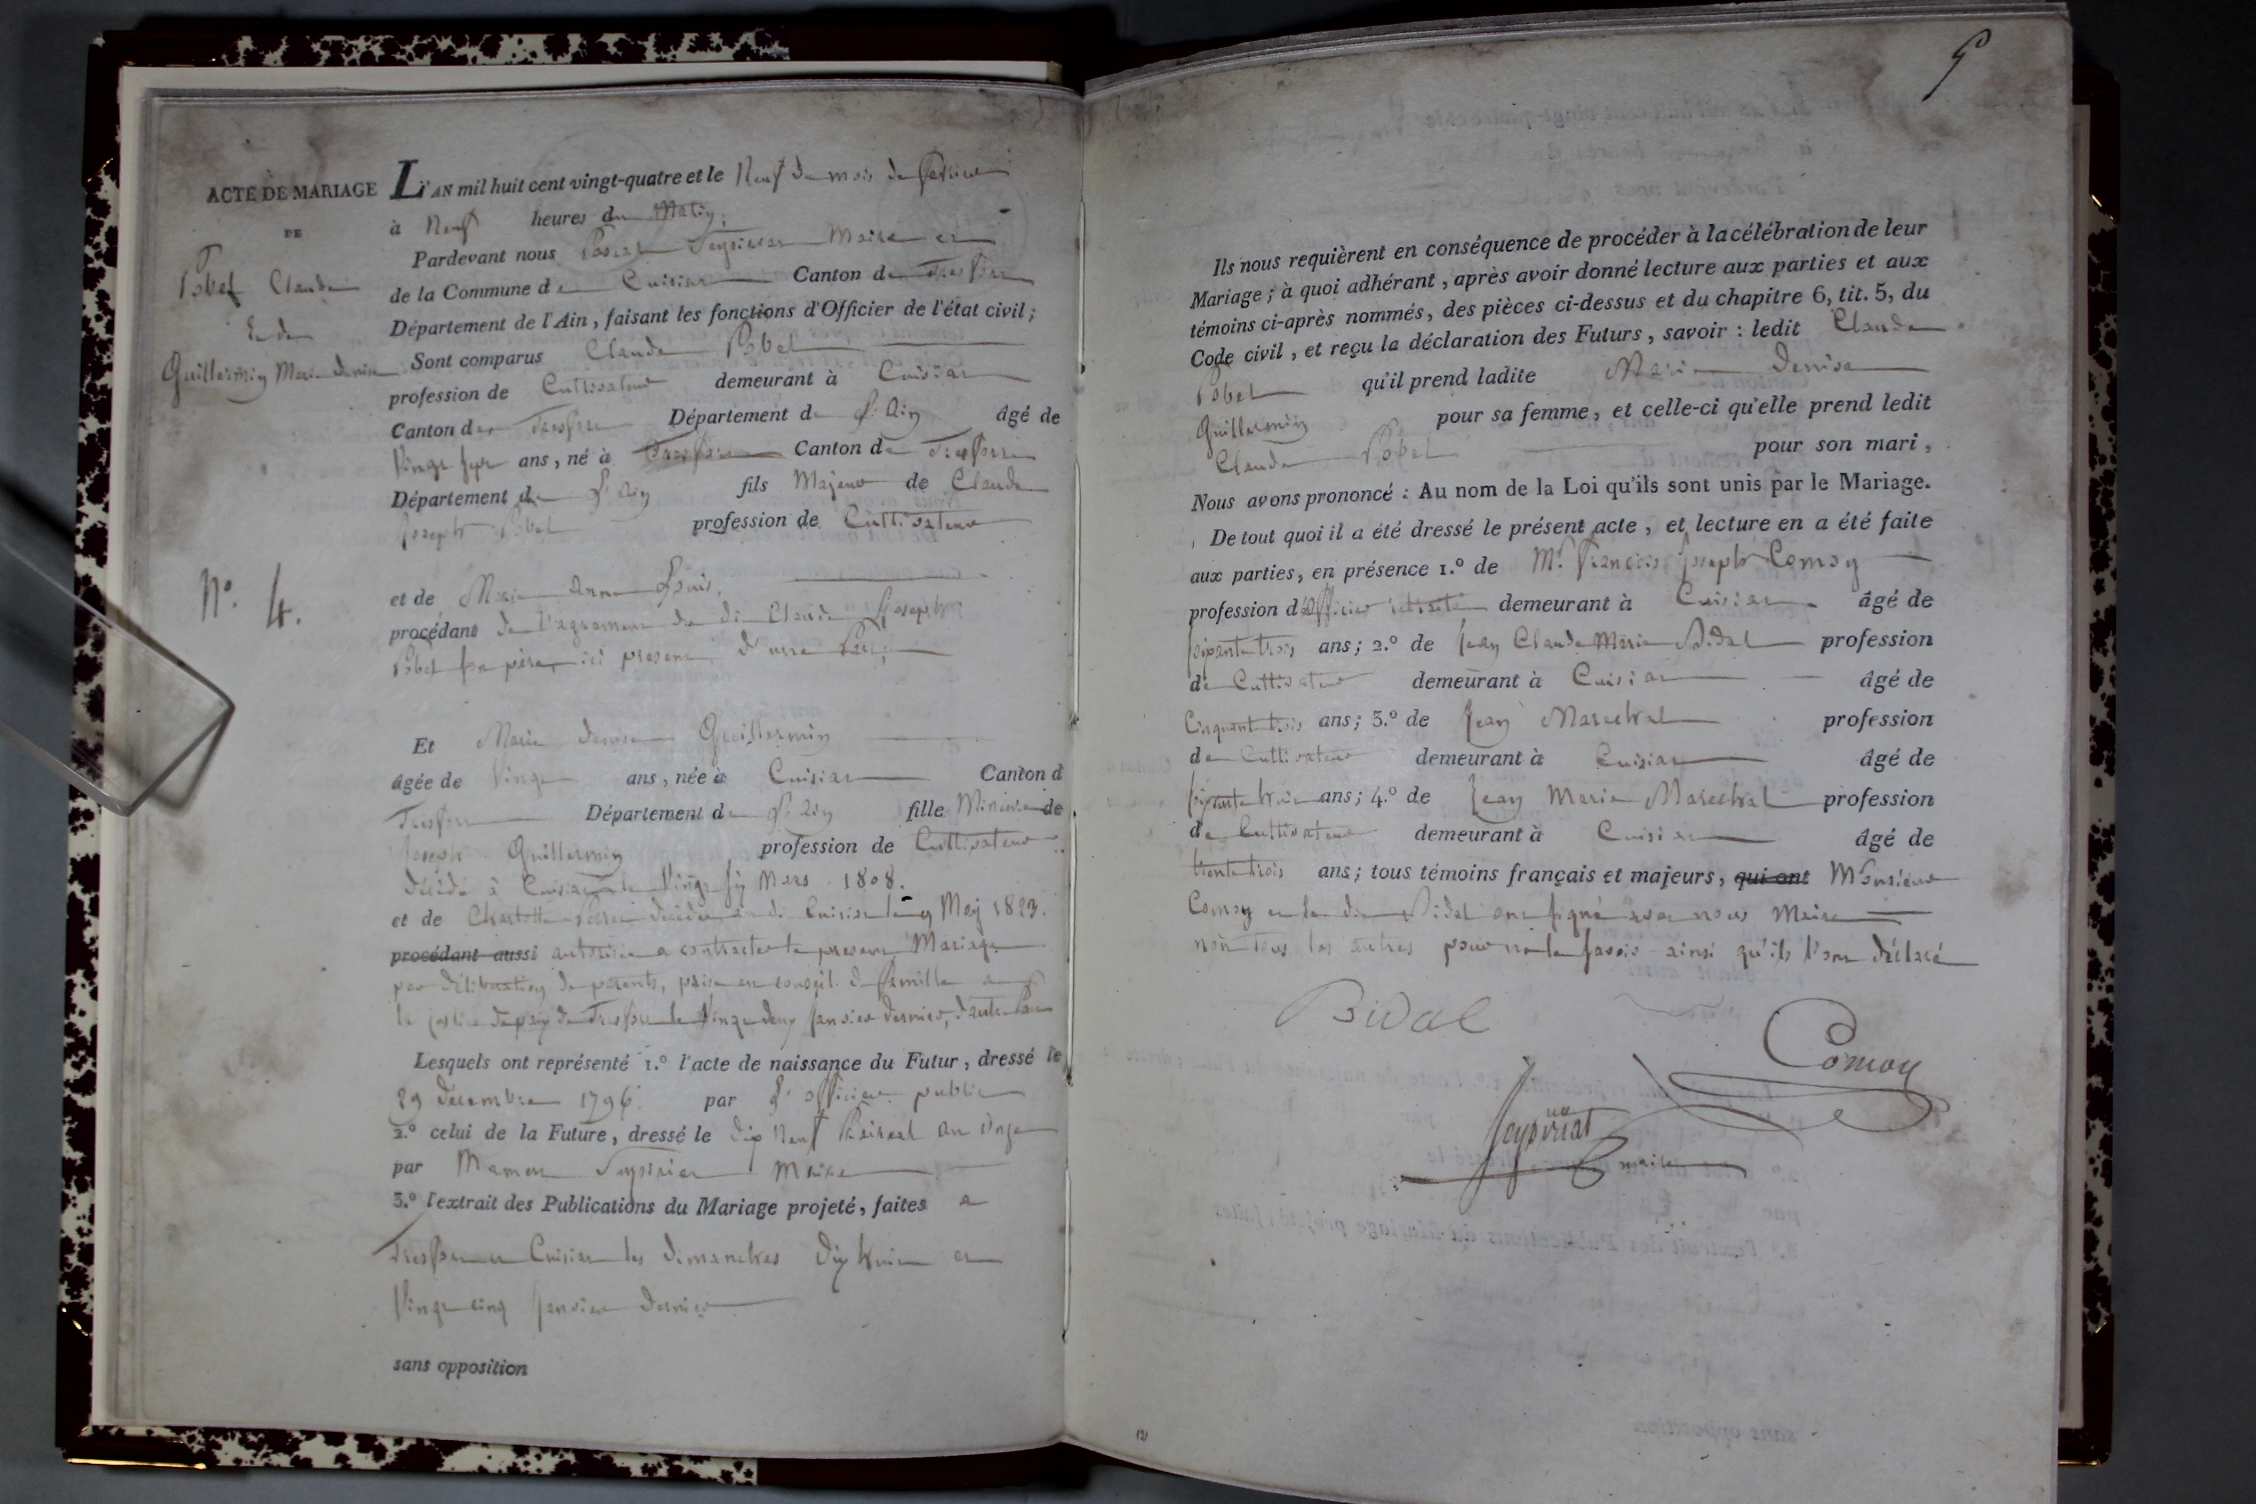 5
ACTE DE MARIAGE
DE
Pobel Claude
Et de
Guillermin Marie denise
N.o 4.
L'AN mil huit cent vingt-quatre et le Neuf du mois de fevrier
à Neuf heures du Matin,
Pardevant nous Maire et
de la Commune de Cuisiat Canton de Treffort
Département de l'Ain, faisant les fonctions d'Officier de l'état civil;
Sont comparus Claude Pobel
profession de Cultivateur demeurant à Cuisiat
Canton de Treffort Département de L'Ain âgé de
Vingt sept ans, né à Treffort Canton de Treffort
Département de L'Ain fils Majeur de Claude
Joseph Pobel profession de Cultivateur
et de Marie Anne
procédant de l'agrement du dit Claude Joseph
Pobel son père, ici present, d'une Part;
Et Marie denise Guillermin
âgée de Vingt ans, née à Cuisiat Canton d
Treffort Département de L'Ain fille Mineure de
Joseph Guillermin profession de Cultivateur
décédé à Cuisiat le Vingt six Mars 1808.
et de Charlotte décédée au dit Cuisiat le Maij 1823.
procédant aussi autorisée a contracter le present Mariage
par déliberation de parents, prise en conseil de famille a
la justice de paix de Treffort le Vingt deux Janvier dernier, d'autre Part
Lesquels ont représenté 1.o l'acte de naissance du Futur, dressé le
29 décembre 1796 par L'officier public
2.o celui de la Future, dressé le dix Neuf Prairial an onze
par Maire
3.o l'extrait des Publications du Mariage projeté, faites a
Treffort et Cuisiat les dimanches dix huit et
Vingt cinq Janvier dernier
sans opposition
Ils nous requièrent en conséquence de procéder à la célébration de leur
Mariage; à quoi adhérant, après avoir donné lecture aux parties et aux
témoins ci-après nommés, des pièces ci-dessus et du chapitre 6, tit. 5, du
Code civil, et reçu la déclaration des Futurs, savoir: ledit Claude
Pobel qu'il prend ladite Marie Denise
Guillermin pour sa femme, et celle-ci qu'elle prend ledit
Claude Pobel pour son mari,
Nous avons prononcé: Au nom de la Loi qu'ils sont unis par le Mariage.
De tout quoi il a été dressé le présent acte, et lecture en a été faite
aux parties, en présence 1.o de Mr. François Joseph Comoy
profession d'officier retraité demeurant à Cuisiat âgé de
soixante trois ans; 2.o de Jean Claude Marie Bidal profession
de Cultivateur demeurant à Cuisiat âgé de
Cinquante trois ans; 3.o de Jean Marechal profession
de Cultivateur demeurant à Cuisiat âgé de
soixante huit ans; 4.o de Jean Marie Marechal profession
de Cultivateur demeurant à Cuisiat âgé de
trente trois ans; tous témoins français et majeurs, qui ont Monsieur
Comoy et le dit Bidal ont signé avec nous Maire
non tous les autres pour ne le savoir ainsi qu'ils l'ont déclaré
Bidal
Comoy
maire